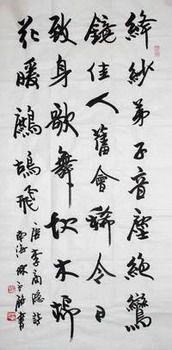 絳紗弟子音塵絕鸞
鏡佳人舊會稀今日
致身歌舞地木棉
花暖鷓鴣飛
唐李商隱詩